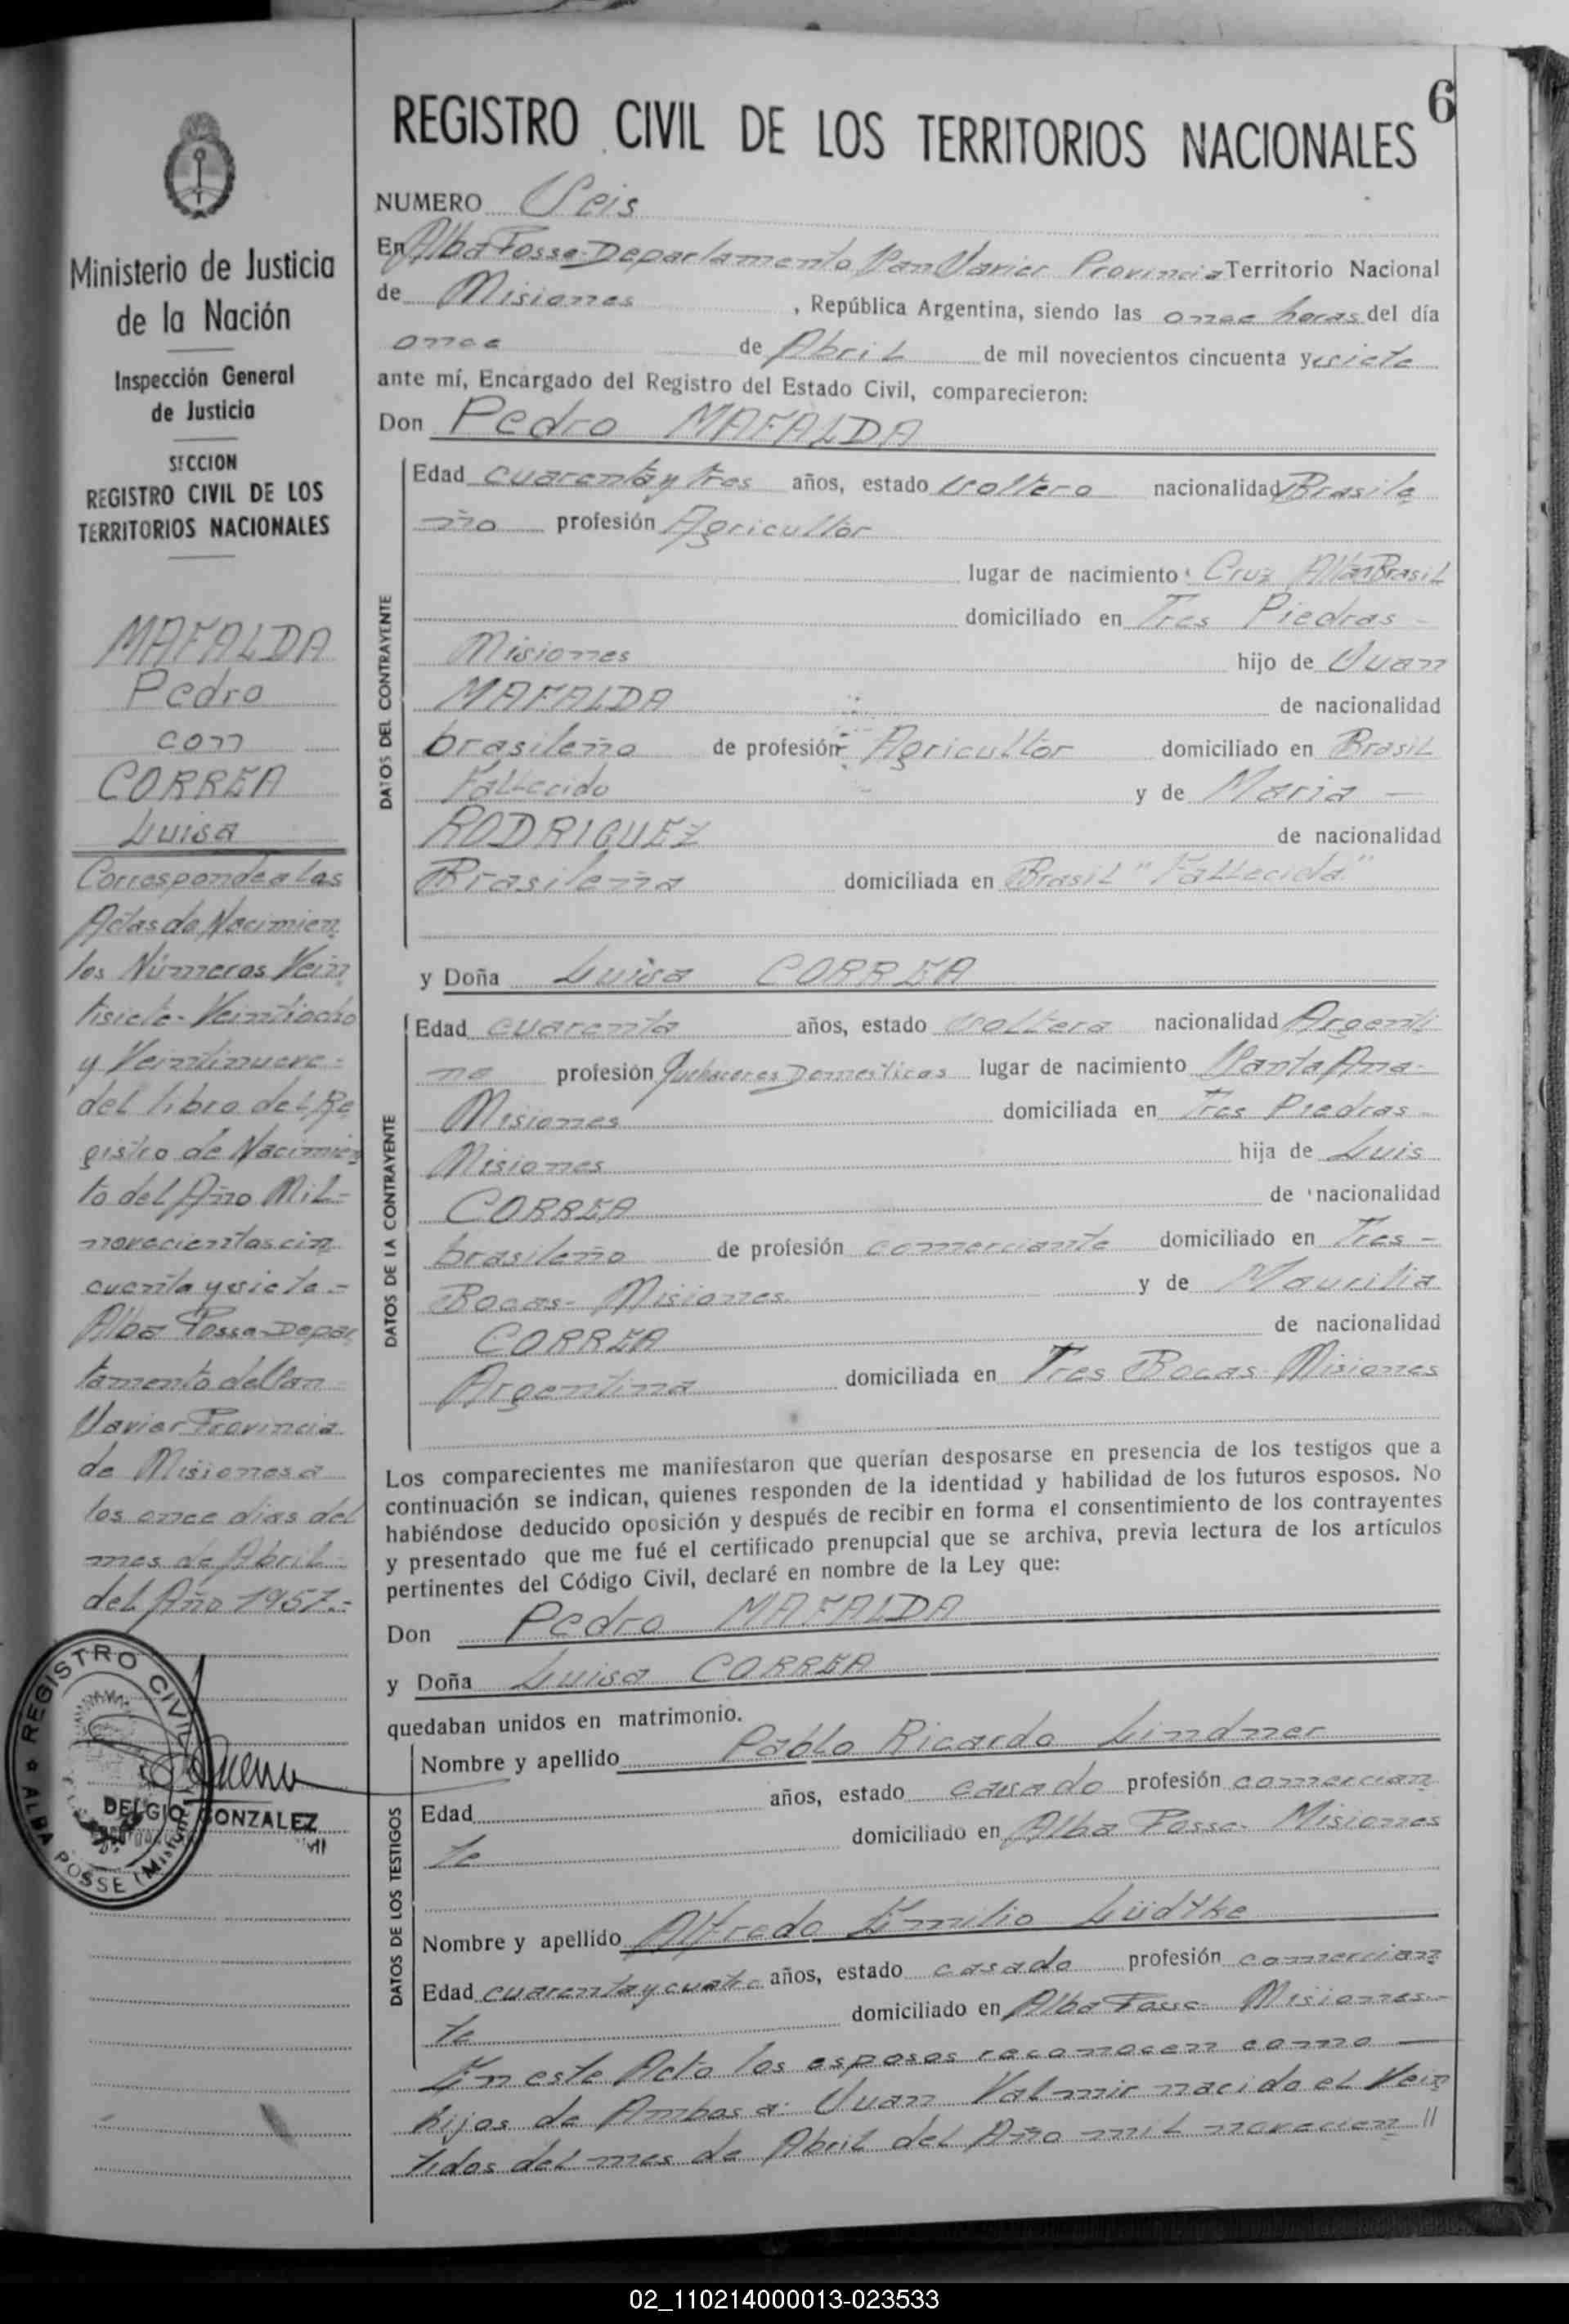 6
REGISTRO CIVIL DE LOS TERRITORIOS NACIONALES
NUMERO Seis
En Alba Posse-Departamento San Javier Provincia Territorio Nacional
de Misiones , República Argentina, siendo las once horas del día
once de Abril de mil novecientos cincuenta y siete
ante mí, Encargado del Registro del Estado Civil, comparecieron:
Don Pedro MAFALDA
DATOS DEL CONTRAYENTE
Edad cuarenta y tres años, estado soltero nacionalidad Brasile
ño profesión Agricultor
lugar de nacimiento Cruz Alta Brasil
domiciliado en Tres Piedras -
Misiones hijo de Juan
MAFALDA de nacionalidad
brasileño de profesión Agricultor domiciliado en Brasil
Fallecido y de Maria —
RODRIGUEZ de nacionalidad
Brasileña domiciliada en Brasil "Fallecida"
y Doña Luisa CORREA
DATOS DE LA CONTRAYENTE
Edad cuarenta años, estado soltera nacionalidad Argenti
na profesión Quehaceres Domesticos lugar de nacimiento Santa Ana-
Misiones domiciliada en Tres Piedras -
Misiones hija de Luis
CORREA de nacionalidad
brasileño de profesión comerciante domiciliado en Tres -
Bocas- Misiones y de Maurilia
CORREA de nacionalidad
Argentina domiciliada en Tres Bocas- Misiones
Los comparecientes me manifestaron que querían desposarse en presencia de los testigos que a
continuación se indican, quienes responden de la identidad y habilidad de los futuros esposos. No
habiéndose deducido oposición y después de recibir en forma el consentimiento de los contrayentes
y presentado que me fué el certificado prenupcial que se archiva, previa lectura de los artículos
pertinentes del Código Civil, declaré en nombre de la Ley que:
Don Pedro MAFALDA
y Doña Luisa CORREA
quedaban unidos en matrimonio.
DATOS DE LOS TESTIGOS
Nombre y apellido Pablo Ricardo Lindner
Edad años, estado casado profesión comercian
te domiciliado en Alba Posse- Misiones
Nombre y apellido Alfredo Emilio Lüdtke
Edad cuarenta y cuatro años, estado casado profesión comercian
te domiciliado en Alba Posse- Misiones-
En este Acto los esposos reconocen como —
hijos de Ambos a: Juan Valmir nacido el Vein
tidos del mes de Abril del Año mil novecien //
Ministerio de Justicia
de la Nación
Inspección General
de Justicia
SECCION
REGISTRO CIVIL DE LOS
TERRITORIOS NACIONALES
MAFALDA
Pedro
con
CORREA
Luisa
Corresponde a las
Actas de Nacimien
tos Números Vein
tisiete- Veintiocho
y Veintinueve-
del libro del Re
gistro de Nacimien
to del Año Mil-
novecientos cin
cuenta y siete-
Alba Posse-Depar
tamento de San
Javier Provincia
de Misiones a
los once dias del
mes de Abril-
del Año 1957.-
REGISTRO CIVIL
ALBA POSSE (Misiones)
GONZALEZ
02_110214000013-023533